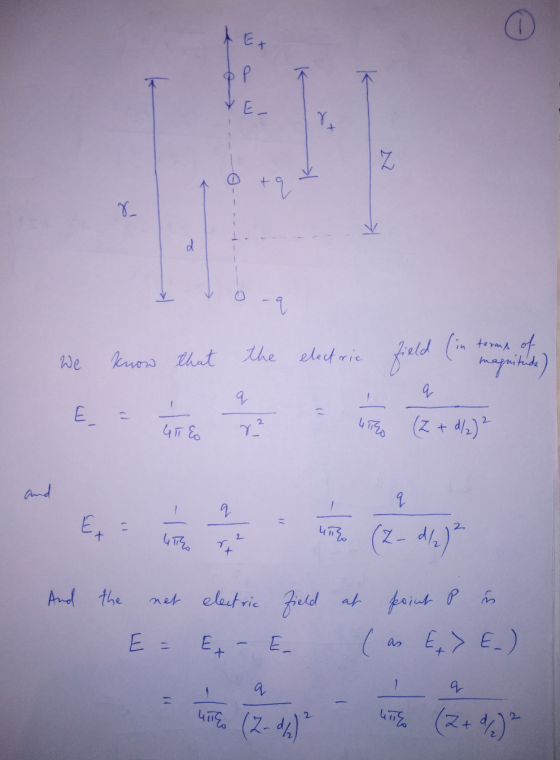 1
E₊
P
E₋
r₊
Z
+q
r₋
d
-q
We know that the electric field (in terms of magnitude)
E₋ = 1/(4πε₀) q/r₋² = 1/(4πε₀) q/(Z + d/2)²
and
E₊ = 1/(4πε₀) q/r₊² = 1/(4πε₀) q/(Z - d/2)²
And the net electric field at point P is
E = E₊ - E₋ (as E₊ > E₋)
= 1/(4πε₀) q/(Z - d/2)² - 1/(4πε₀) q/(Z + d/2)²